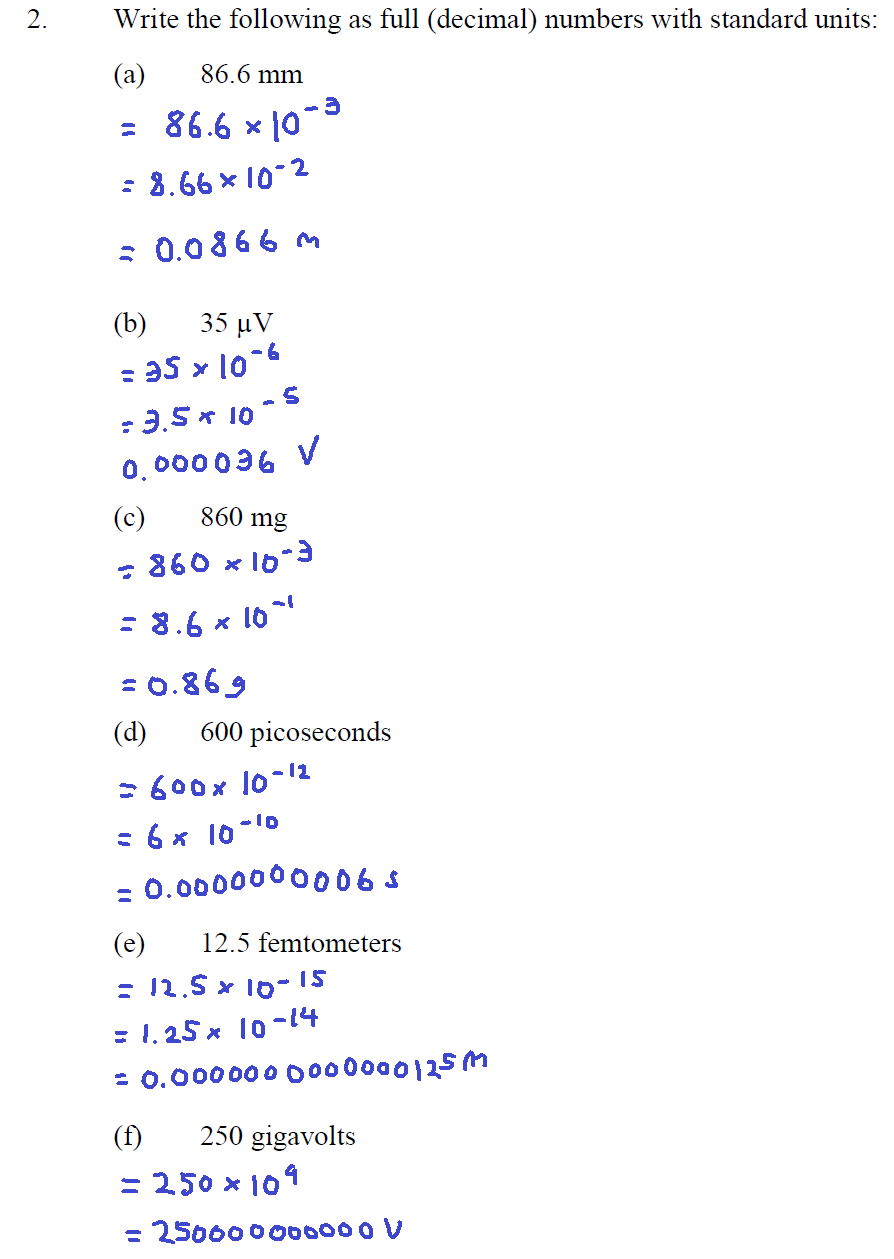 2. Write the following as full (decimal) numbers with standard units:
(a) 86.6 mm
= 86.6 × 10⁻³
= 8.66 × 10⁻²
= 0.0866 m
(b) 35 µV
= 35 × 10⁻⁶
= 3.5 × 10⁻⁵
0.000036 V
(c) 860 mg
= 860 × 10⁻³
= 8.6 × 10⁻¹
= 0.86 g
(d) 600 picoseconds
= 600 × 10⁻¹²
= 6 × 10⁻¹⁰
= 0.0000000006 s
(e) 12.5 femtometers
= 12.5 × 10⁻¹⁵
= 1.25 × 10⁻¹⁴
= 0.0000000000000125 m
(f) 250 gigavolts
= 250 × 10⁹
= 250000000000 V